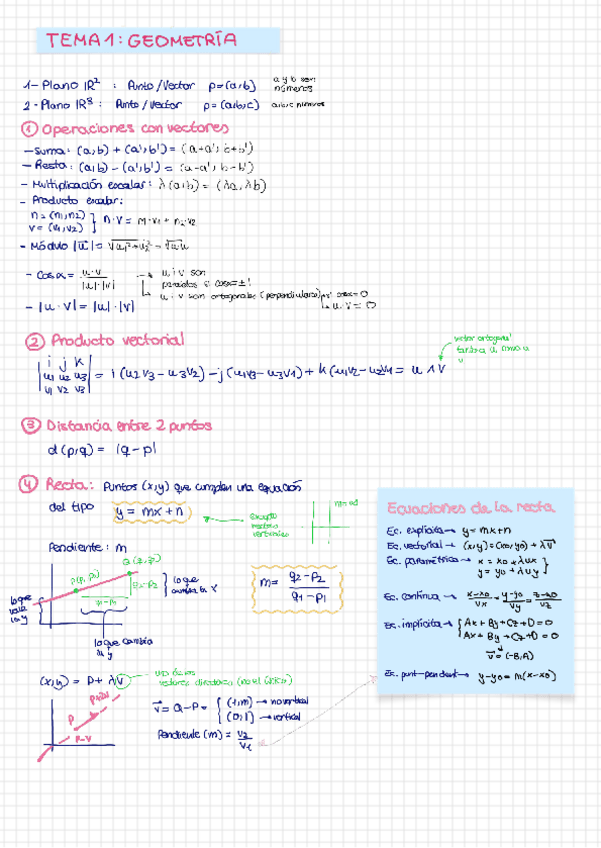 TEMA 1: GEOMETRÍA
1- Plano IR² : Punto/Vector p=(a,b) a y b son números
2- Plano IR³ : Punto/Vector p=(a,b,c) a,b,c números
① Operaciones con vectores
- Suma: (a,b) + (a',b') = (a+a', b+b')
- Resta: (a,b) - (a',b') = (a-a', b-b')
- Multiplicación escalar: λ(a,b) = (λa, λb)
- Producto escalar:
n = (n1,n2)
v = (v1,v2)
- Módulo
- Cos α = u·v / |u|·|v|
u i v son
paralelos si cos α = ±1
u i v son ortogonales (perpendiculares) cos α = 0
u·v = 0
- |u·v| = |u|·|v|
② Producto vectorial
vector ortogonal
i j k
u1 u2 u3
v1 v2 v3
= i (u2v3 - u3v2) - j (u1v3 - u3v1) + k (u1v2 - u2v1 = u ∧ v
③ Distancia entre 2 puntos
d(p,q) = |q - p|
④ Recta: Puntos (x,y) que cumplen una equación
del tipo y = mx + n
excepto
rectas
verticales
Pendiente: m
lo que cambia la y
m = q2-p2 / q1-p1
(x,y) = P + λv
P+2v
P
P-v
v = Q - P = (1,m) → no vertical
(0,1) → vertical
Pendiente (m) = v2 / v1
Equaciones de la recta
Ec. explícita → y = mx+n
Ec. vectorial → (x,y) = (x0,y0) + λv
Ec. paramétrica → x = x0 + λux
y = y0 + λuy
Ec. contínua → x-x0 / vx = y-y0 / vy = z-z0 / vz
Ec. implícita → Ax + By + Cz + D = 0
Ax + By + Cz + D = 0
v = (-B,A)
Ec. punt-pendent → y-y0 = m(x-x0)